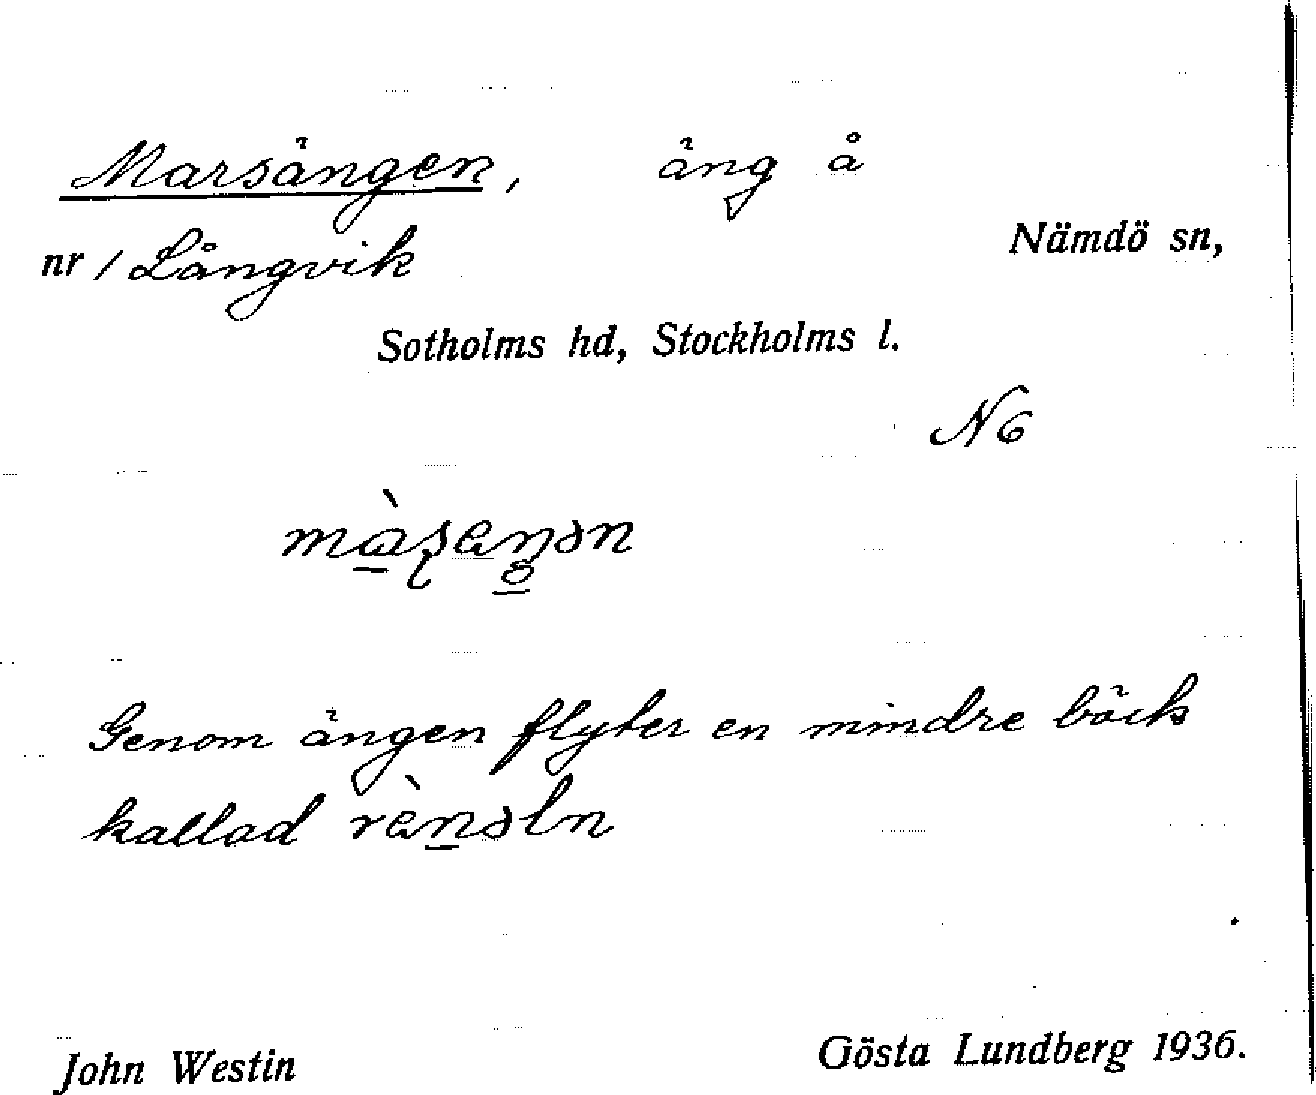 Marsängen, äng å
nr 1 Långvik Nämdö sn,
Sotholms hd, Stockholms l.
Genom ängen flyter en mindre bäck
kallad
John Westin Gösta Lundberg 1936.